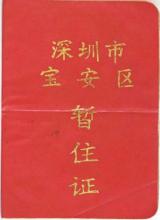 深圳市
宝安区
暂住证